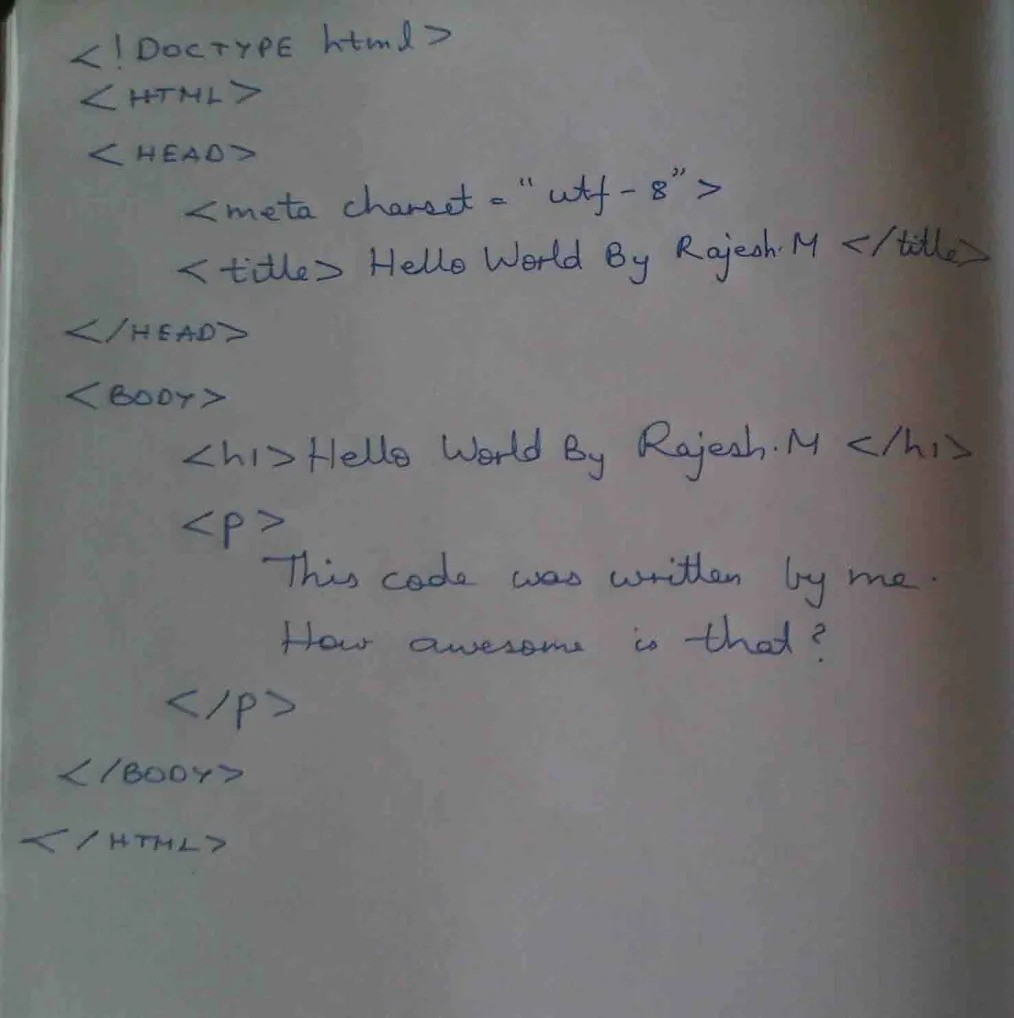 <!DOCTYPE html>
<HTML>
<HEAD>
<meta charset = "utf-8">
<title> Hello World By Rajesh.M </title>
</HEAD>
<BODY>
<h1>Hello World By Rajesh.M </h1>
<p>
This code was written by me.
How awesome is that?
</p>
</BODY>
</HTML>